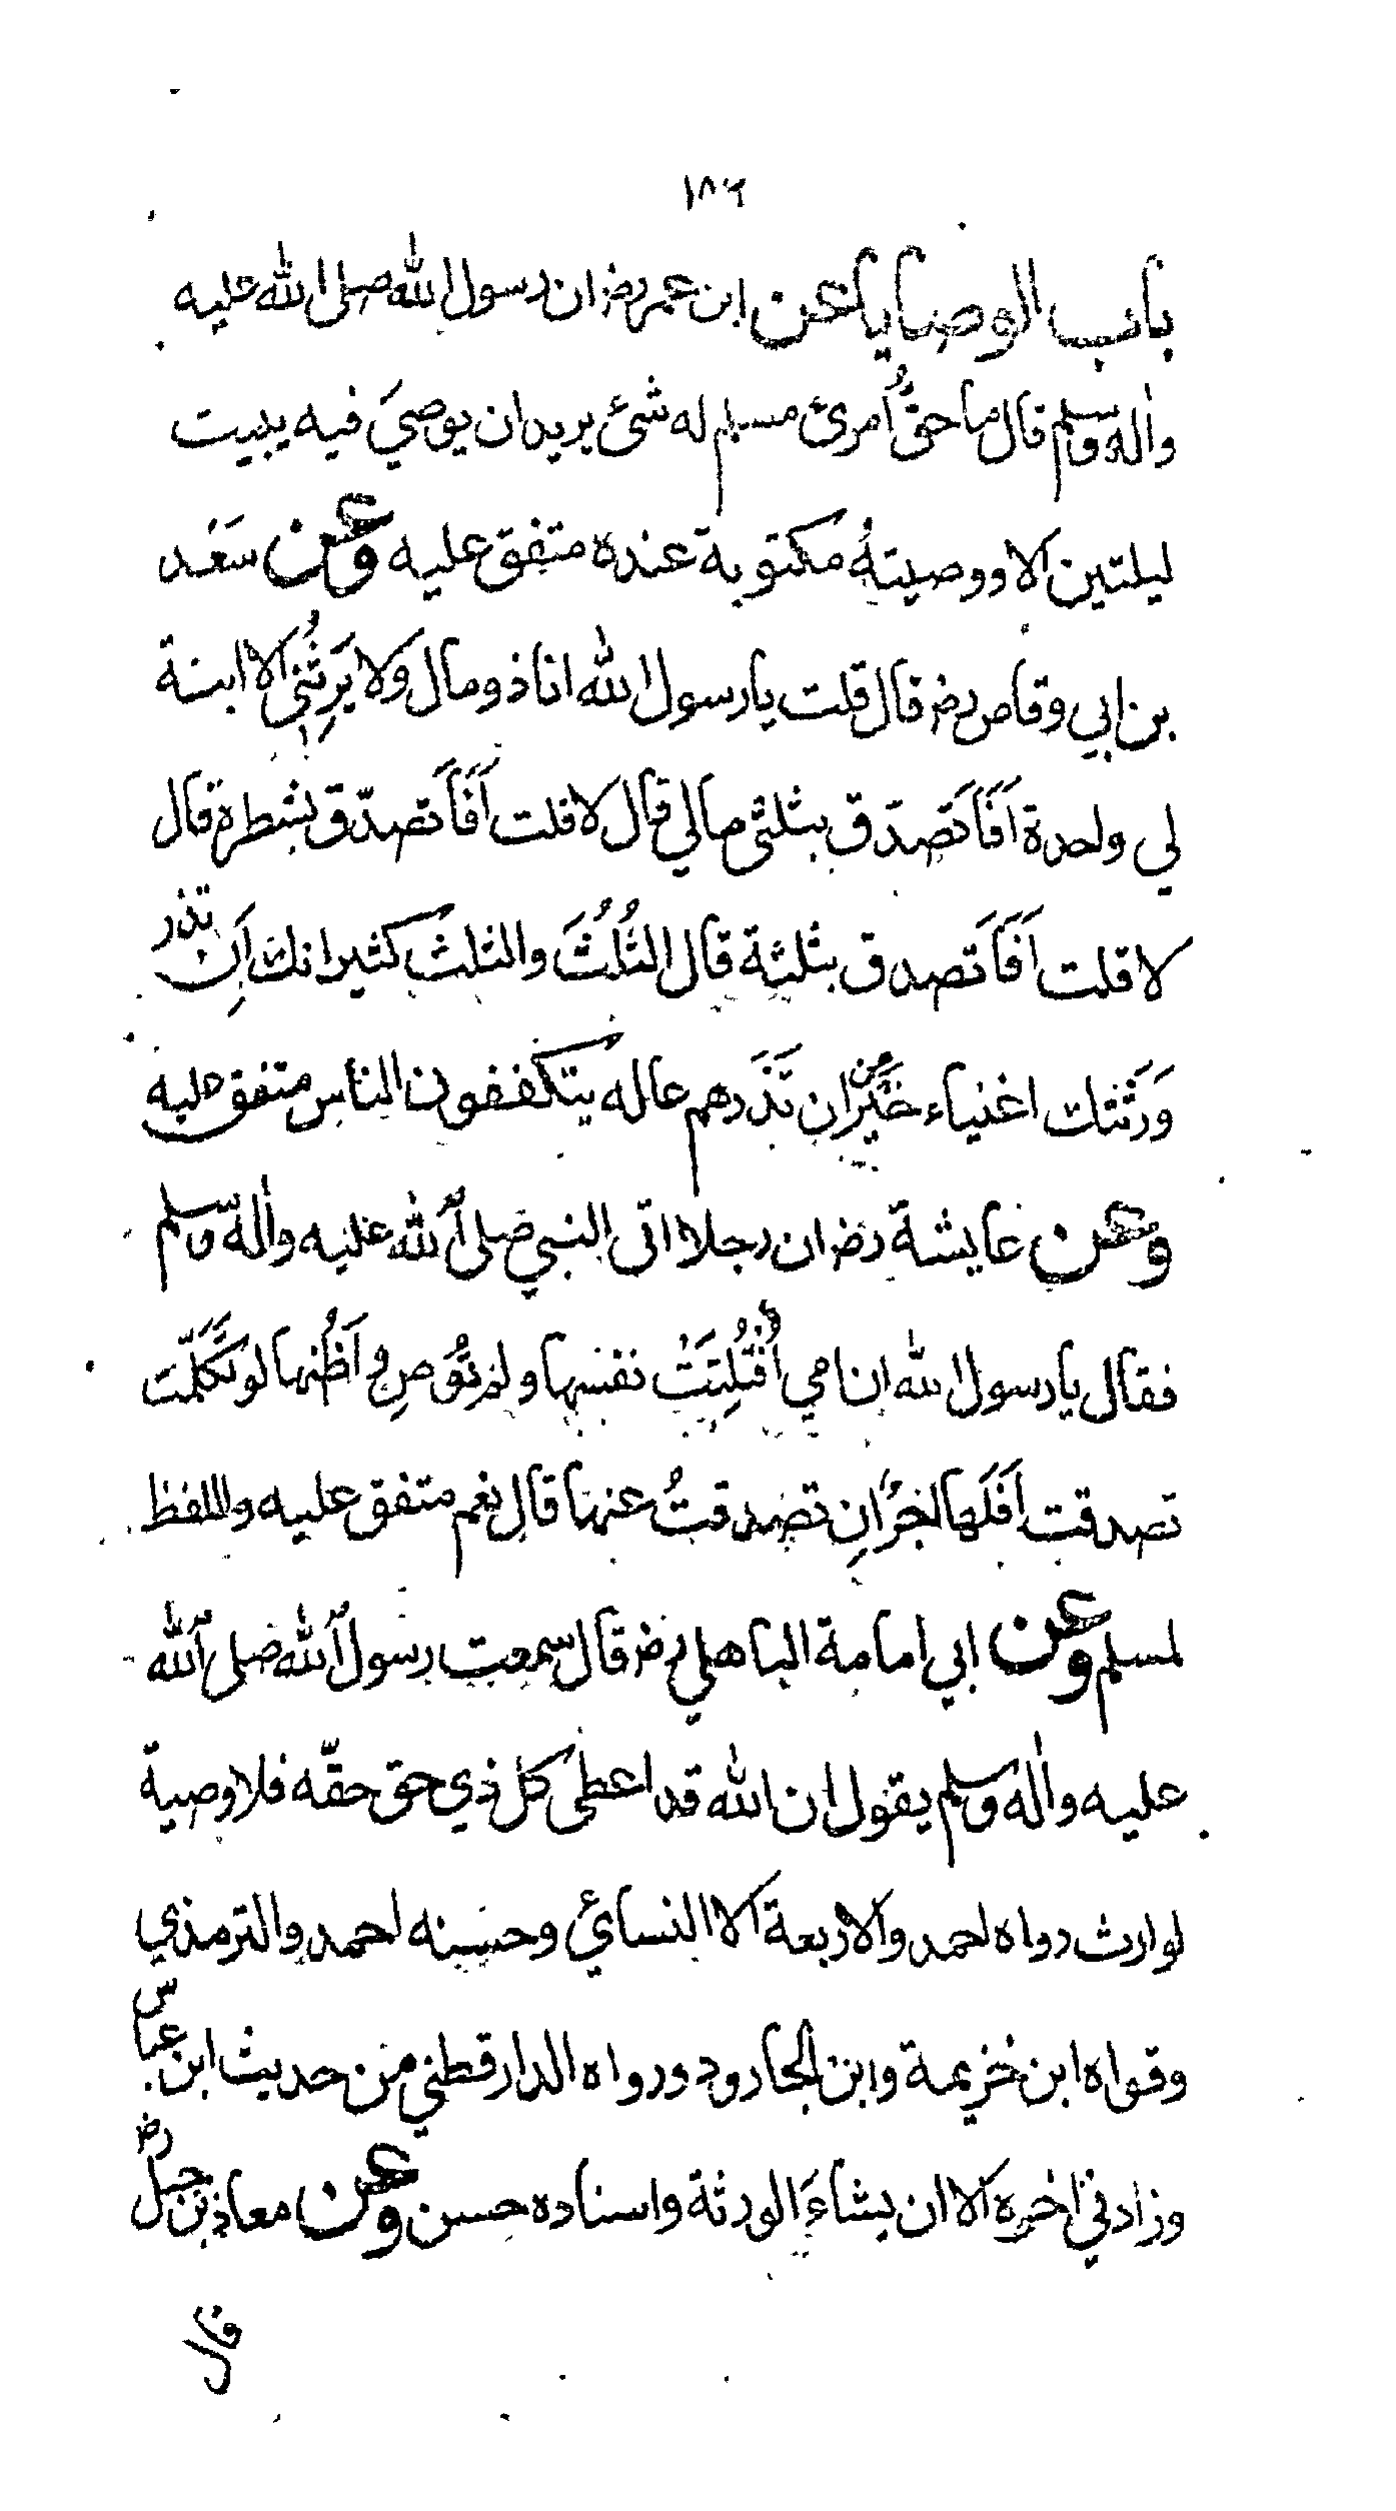 ١٨٦
باب الوصايا عن ابن عمر رض ان رسول الله صلى الله عليه
واله وسلم قال ما حقُّ امرئ مسلم له شئ يريد ان يوصيَ فيه يبيت
ليلتين الا ووصيتهُ مكتوبة عنده متفق عليه وعن سَعْد
بن ابي وقاص رض قال قلت يا رسول الله انا ذو مال ولا يَرِثُني الا ابنة
لي واحدة اَفَاَتَصَدّق بثلثي مالي قال لا قلت اَفَاَتصدّق بشطره قال
لا قلت اَفَاَتصدق بثلثة قال الثُلُثَ والثلث كثير انك اَِن تذر
وَرَثَتَك اغنياء خَيْرٌ من ان تَذَرهم عاله يتكففون الناس متفق عليه
وعن عايشة رض ان رجلا اتى النبي صلى الله عليه واله وسلم
فقال يا رسول الله ان امي اُفْتُلِتَتْ نفسها ولم تُوصِ واَظُنها لو تَكَلّمت
تصدقت اَفَلَها اجرٌ اِن تصدقتُ عنها قال نعم متفق عليه واللفظ
لمسلم وعن ابي امامة الباهلي رض قال سمعت رسول الله صلى الله
عليه واله وسلم يقول ان الله قد اعطى كل ذي حق حقّه فلا وصية
لوارث رواه احمد والاربعة الا النسائي وحسنه احمد والترمذي
وقواه ابن خزيمة وابن الجارود ورواه الدارقطني من حديث ابن عباس
رض
وزاد في اخره الا ان يشاءَ الورثة واسناده حسن وعن معاذ بن جبل
قال